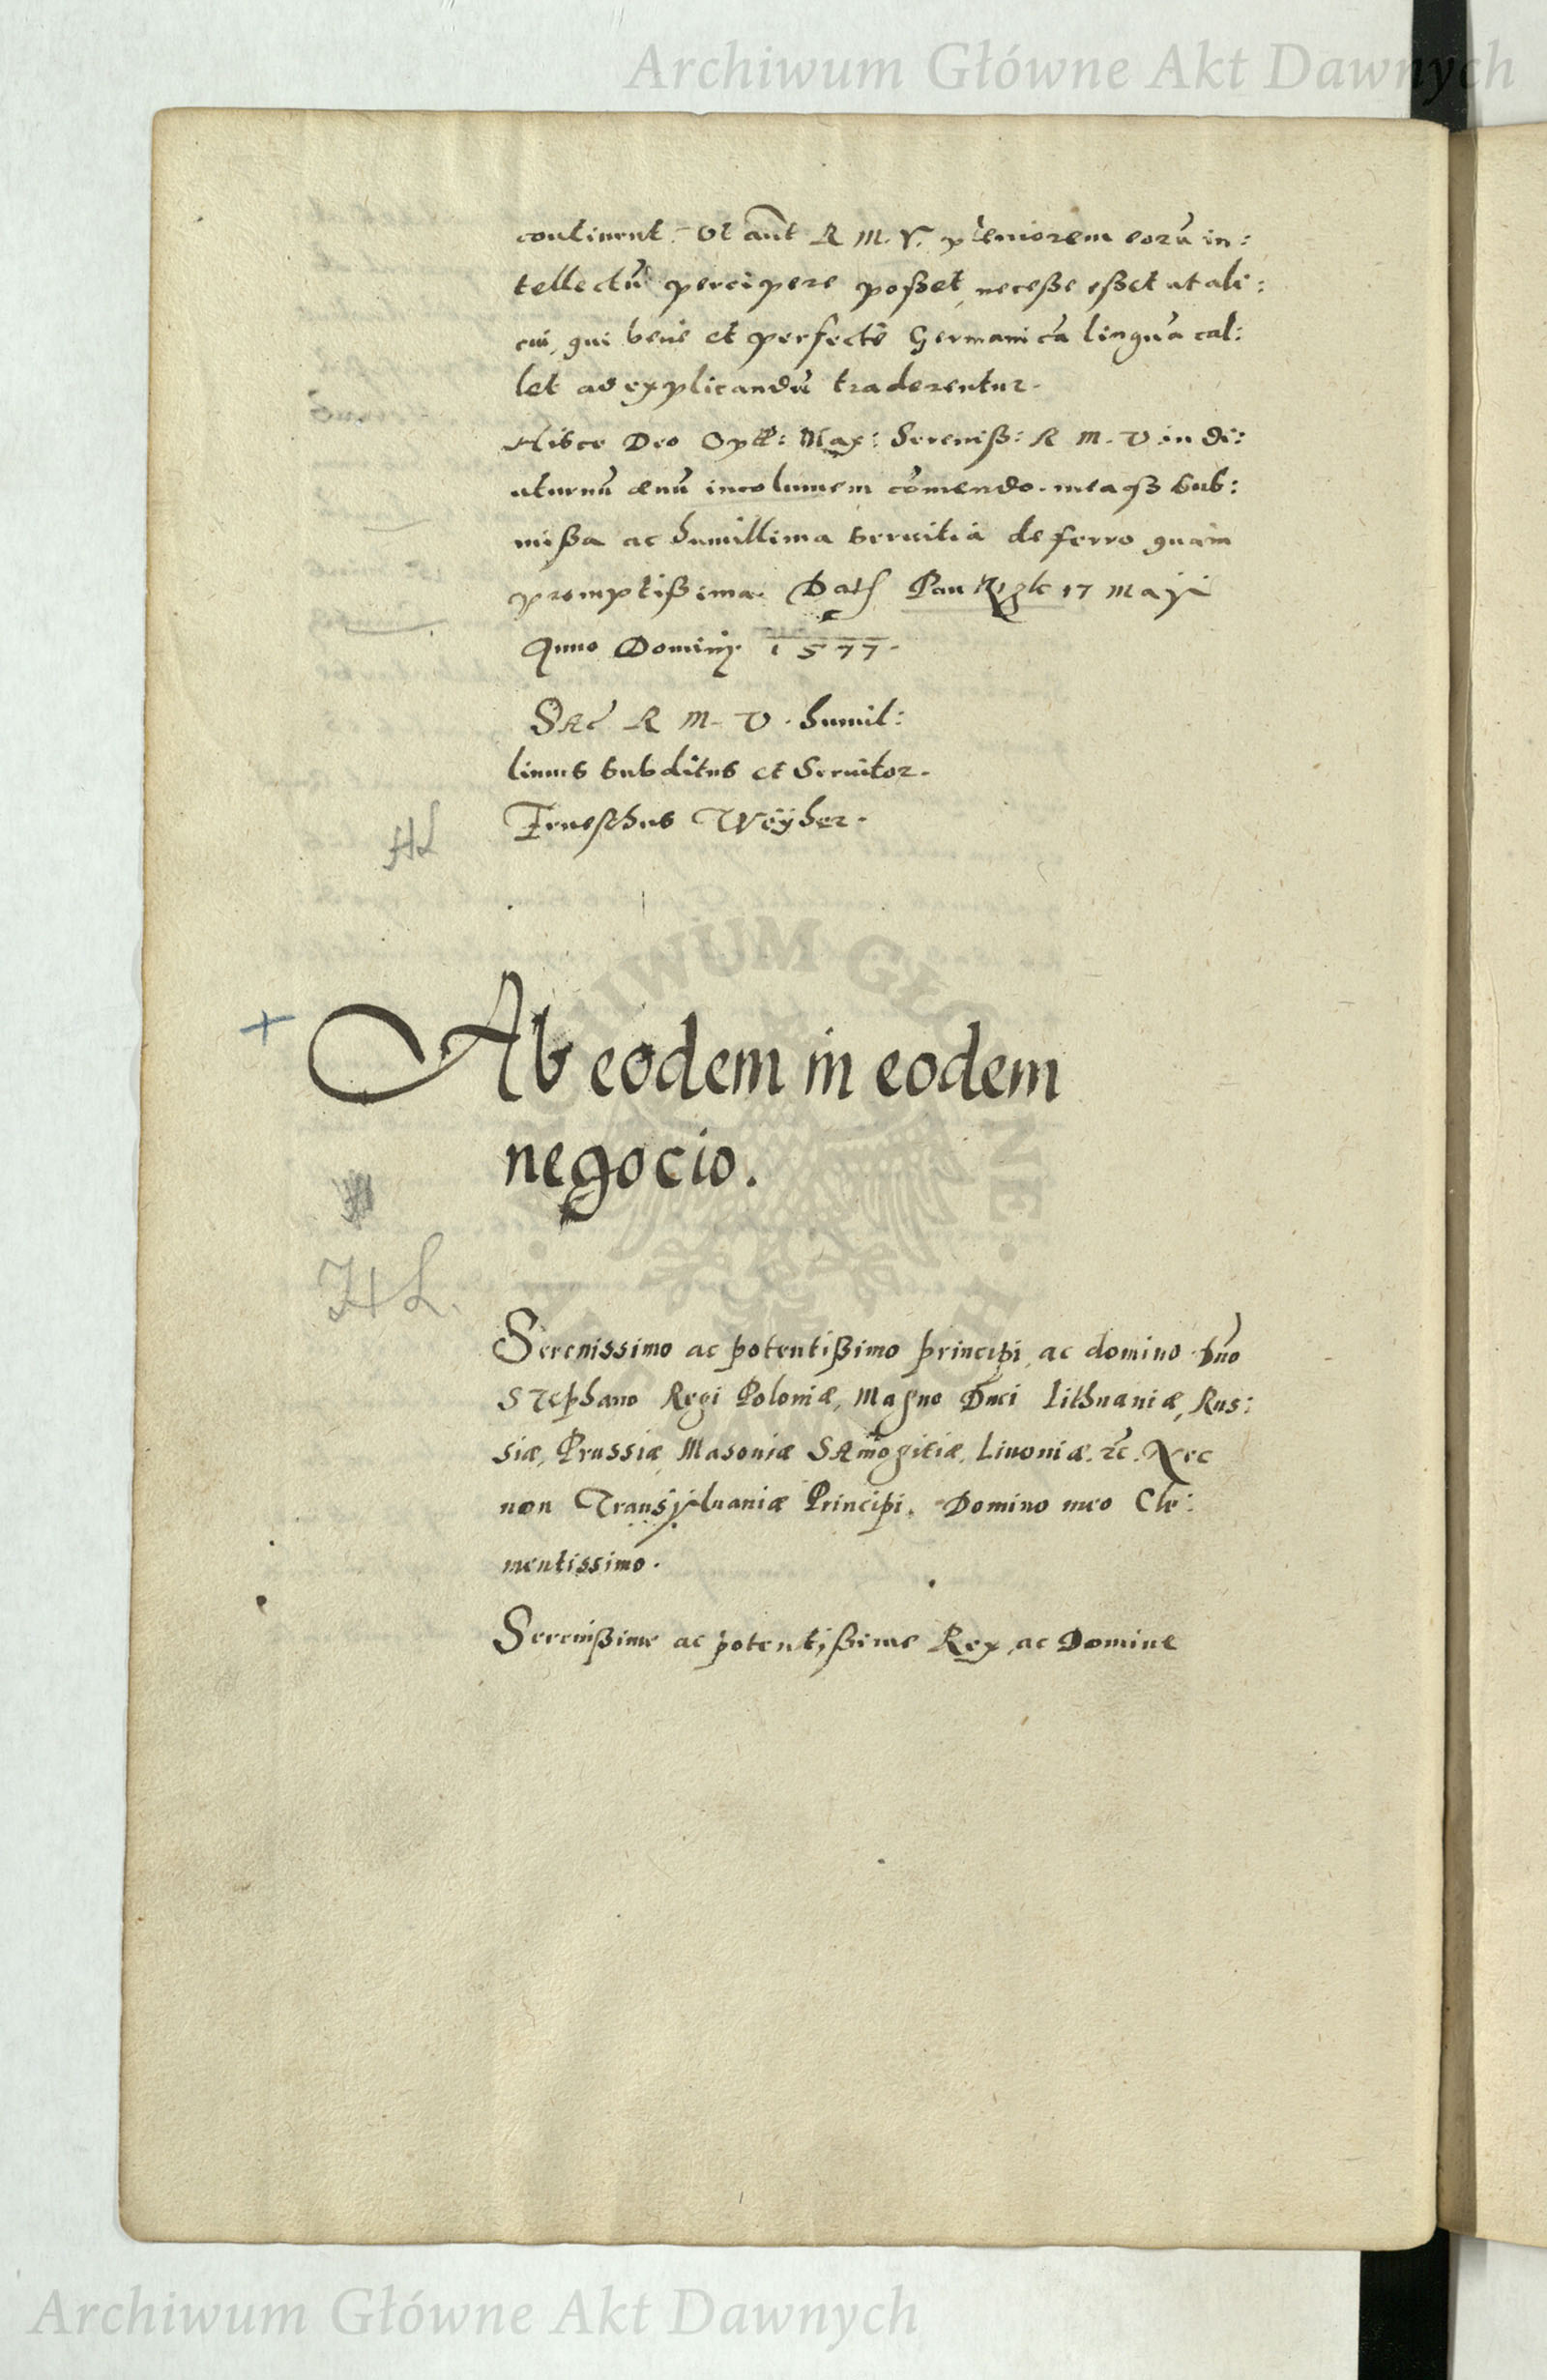 Archiwum Główne Akt Dawnych
continent. Vt aut̃ R M. V. pleniorem eorũ in:
tellectũ percipere poßet, neceße eßet ut ali:
cui, qui bene et perfecte Germanicã linguã cal:
let ad explicandũ traderentur.
Hisce Deo Opt: Max: Sereniß: R M. V in di:
uturnũ æuũ incolumem cõmendo. meaqȝ sub:
mißa ac humillima seruitia defero quam
promptißima. Dat 17 Maji
Anno Dominj 1577.
Sac̃ R M. V. humil:
limus subditus et Seruitor.
Weÿher.
HL
Ab eodem in eodem
negocio.
HL.
Serenissimo ac potentißimo principi, ac domino dño
Stephano Regi Poloniæ, Magno Duci Lithuaniæ, Rus:
siæ, Prussiæ, Masoniæ Samogitiæ, Liuoniæ. ꝛc̃. Nec
non Transyluaniæ Principi. Domino meo Cle:
mentissimo.
Serenißime ac potentißime Rex, ac Domine
ARCHIWUM GŁÓWNE
Archiwum Główne Akt Dawnych